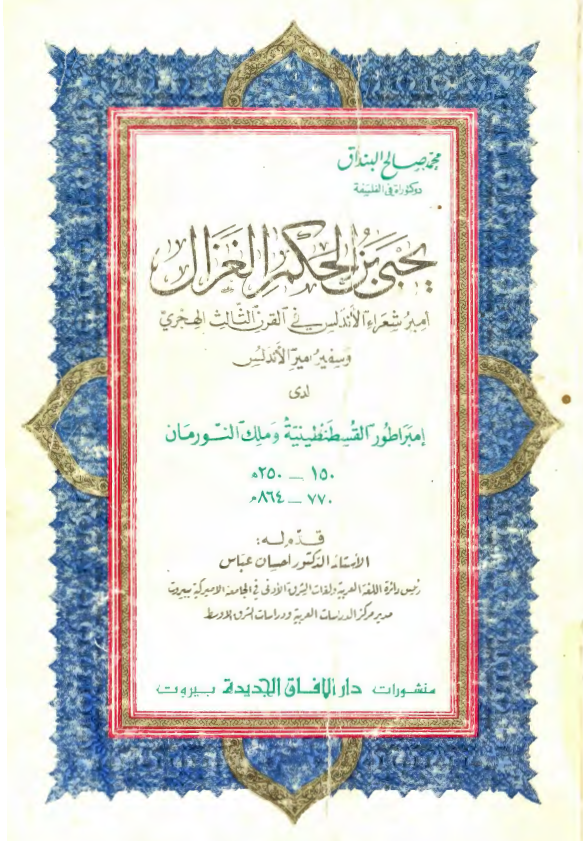 محمد صالح البنداق
دوكتوراه في الفلسفة
يحيى بن الحكم الغزال
امير شعراء الأندلس في القرن الثالث الهجري
وسفير امير الأندلس
لدى
إمبراطور القسطنطينية وملك النورمان
١٥٠ — ٢٥٠ هـ
٧٧٠ — ٨٦٤ م
قدم له:
الأستاذ الدكتور احسان عباس
رئيس دائرة اللغة العربية ولغات الشرق الأدنى في الجامعة الاميركية ببيروت
مدير مركز الدراسات العربية ودراسات الشرق الاوسط
منشورات دار الآفاق الجديدة بيروت